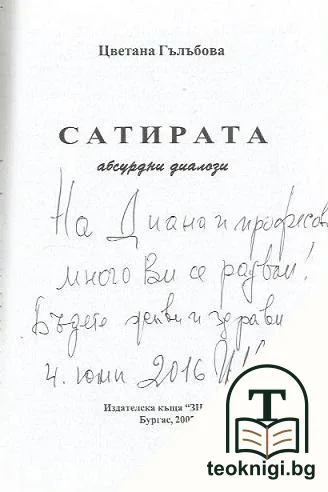 Цветана Гълъбова
САТИРАТА
абсурдни диалози
На Диана и професо
много Ви се радвам!
Бъдете живи и здрави
4. юни 2016
Издателска къща “ЗН
Бургас, 200
T
teoknigi.bg